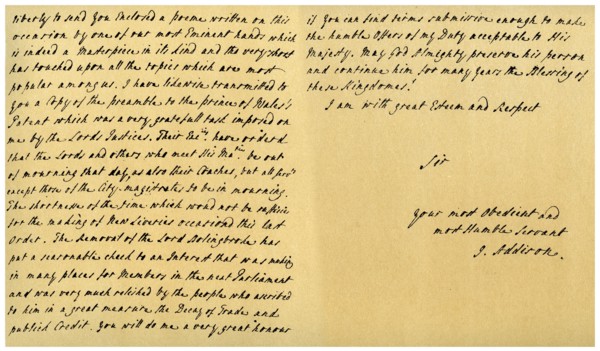 liberty to send you enclosed a poeme written on this
occasion by one of our most Eminent hands which
is indeed a Masterpiece in its kind and tho very short
has touched upon all the topics which are most
popular among us. I have likewise transmitted to
you a Copy of the preamble to the prince of Wales's
Patent which was a very gratefull task imposed on
me by the Lords Justices. Their Exc.ies have orderd
that the Lords and others who meet His Ma.tie be out
of mourning that day, as also their Coaches, but all
except those of the City-magistrates to be in mourning.
The shortness of the time which woud not be suffice
for the making of New Liveries occasiond this last
Order. The Removal of the Lord Bolingbroke has
put a seasonable check to an Interest that was making
in many places for Members in the next Parliament
and was very much relished by the people who ascribed
to him in a great measure the Decay of Trade and
publick Credit. you will do me a very great honour
if you can find terms submissive enough to make
the humble Offers of my Duty acceptable to His
Majesty. May God Almighty preserve his person
and continue him for many years the Blessing of
these Kingdomes!
I am with great Esteem and Respect
Sir
your most Obedient and
most Humble Servant
J. Addison.